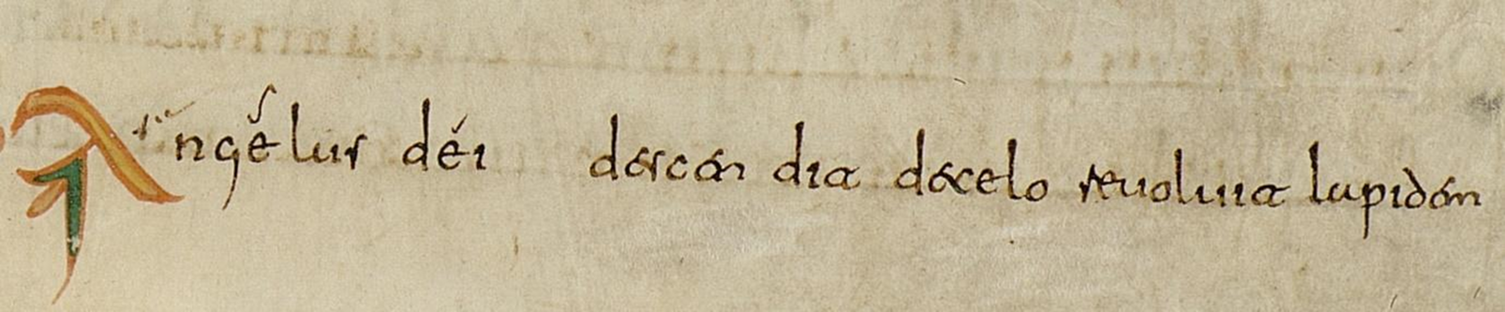 Angelus dei descen dit de celo reuoluit lapiden